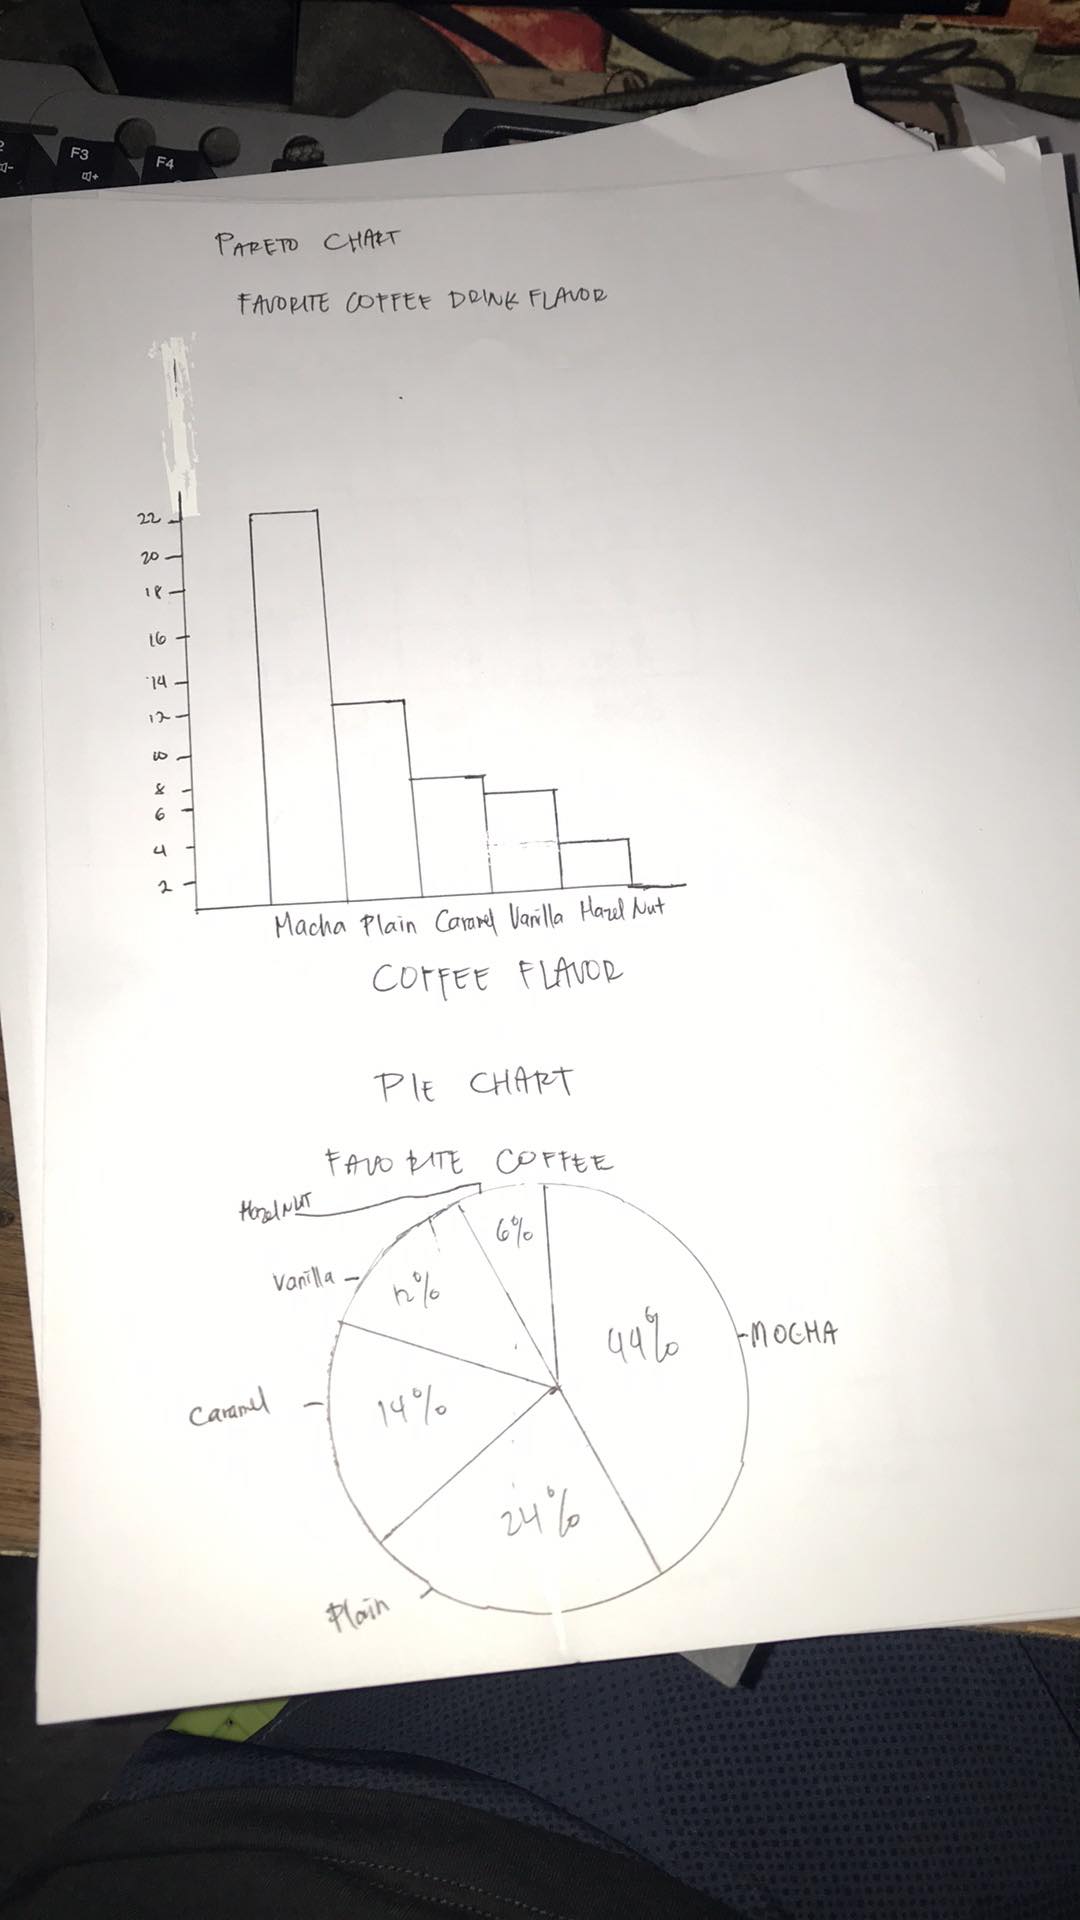 F3
F4
PARETO CHART
FAVORITE COFFEE DRINK FLAVOR
22
20
18
16
14
12
10
8
6
4
2
Macha Plain Caramel Vanilla Hazel Nut
COFFEE FLAVOR
PIE CHART
FAVORITE COFFEE
HazelNUT
6%
Vanilla
12%
44%
MOCHA
Caramel
14%
24%
Plain